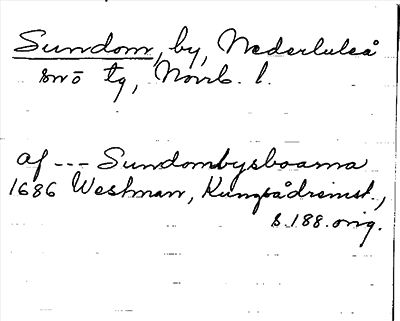 Sundom, by, Nederluleå
snö tg, Norrb. l.
af --- Sundombysboarna
1686 Westman, Kungsådrsinst.,
s. 188. orig.